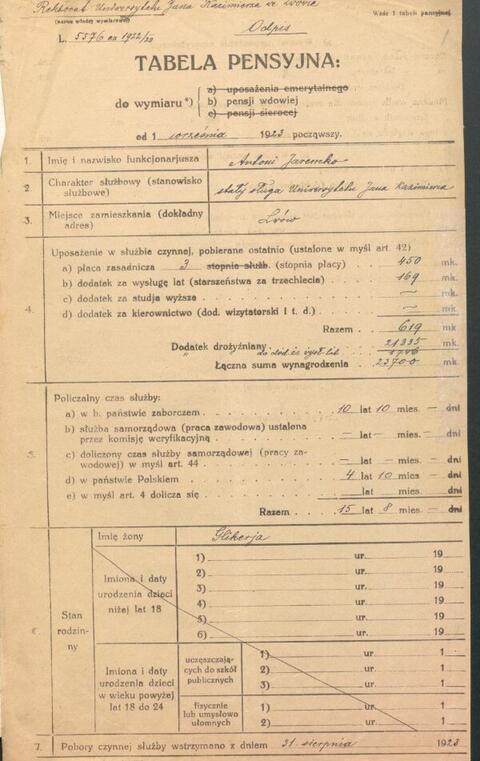 Rektorat Uniwersytetu Jana Kazimierza we Lwowie
(nazwa władzy wymiarowej)
Wzór 1 tabeli pensyjnej.
L. 5576 ex 1922/23
Odpis
TABELA PENSYJNA:
do wymiaru*)
a) uposażenia emerytalnego
b) pensji wdowiej
c) pensji sierocej
od 1 września 1923 począwszy.
1. Imię i nazwisko funkcjonarjusza Antoni Jaremko
2. Charakter służbowy (stanowisko służbowe) stały sługa Uniwersytetu Jana Kazimierza
3. Miejsce zamieszkania (dokładny adres) Lwów
4. Uposażenie w służbie czynnej, pobierane ostatnio (ustalone w myśl art. 42)
a) płaca zasadnicza 3 stopnia służb. (stopnia płacy) 450 mk.
b) dodatek za wysługę lat (starszeństwa za trzechlecia) 169 mk.
c) dodatek za studja wyższe — mk.
d) dodatek za kierownictwo (dod. wizytatorski i t. d.) — mk.
Razem 619 mk.
Dodatek drożyźniany 21335 mk.
Łączna suma wynagrodzenia 23700 mk.
5. Policzalny czas służby:
a) w b. państwie zaborczem 10 lat 10 mies. — dni
b) służba samorządowa (praca zawodowa) ustalona
przez komisję weryfikacyjną — lat — mies. — dni
c) doliczony czas służby samorządowej (pracy za-
wodowej) w myśl art. 44 — lat — mies. — dni
d) w państwie Polskiem 4 lat 10 mies. — dni
e) w myśl art. 4 dolicza się lat — mies. — dni
Razem 15 lat 8 mies. — dni
6. Stan rodzin-
ny
Imię żony Glikerja
Imiona i daty
urodzenia dzieci
niżej lat 18
1) ur. 19
2) ur. 19
3) ur. 19
4) ur. 19
5) ur. 19
6) ur. 19
Imiona i daty
urodzenia dzieci
w wieku powyżej
lat 18 do 24
uczęszczają-
cych do szkół
publicznych
1) ur. 1
2) ur. 1
3) ur. 1
fizycznie
lub umysłowo
ułomnych
1) ur. 1
2) ur. 1
7. Pobory czynnej służby wstrzymano z dniem 31 sierpnia 1923